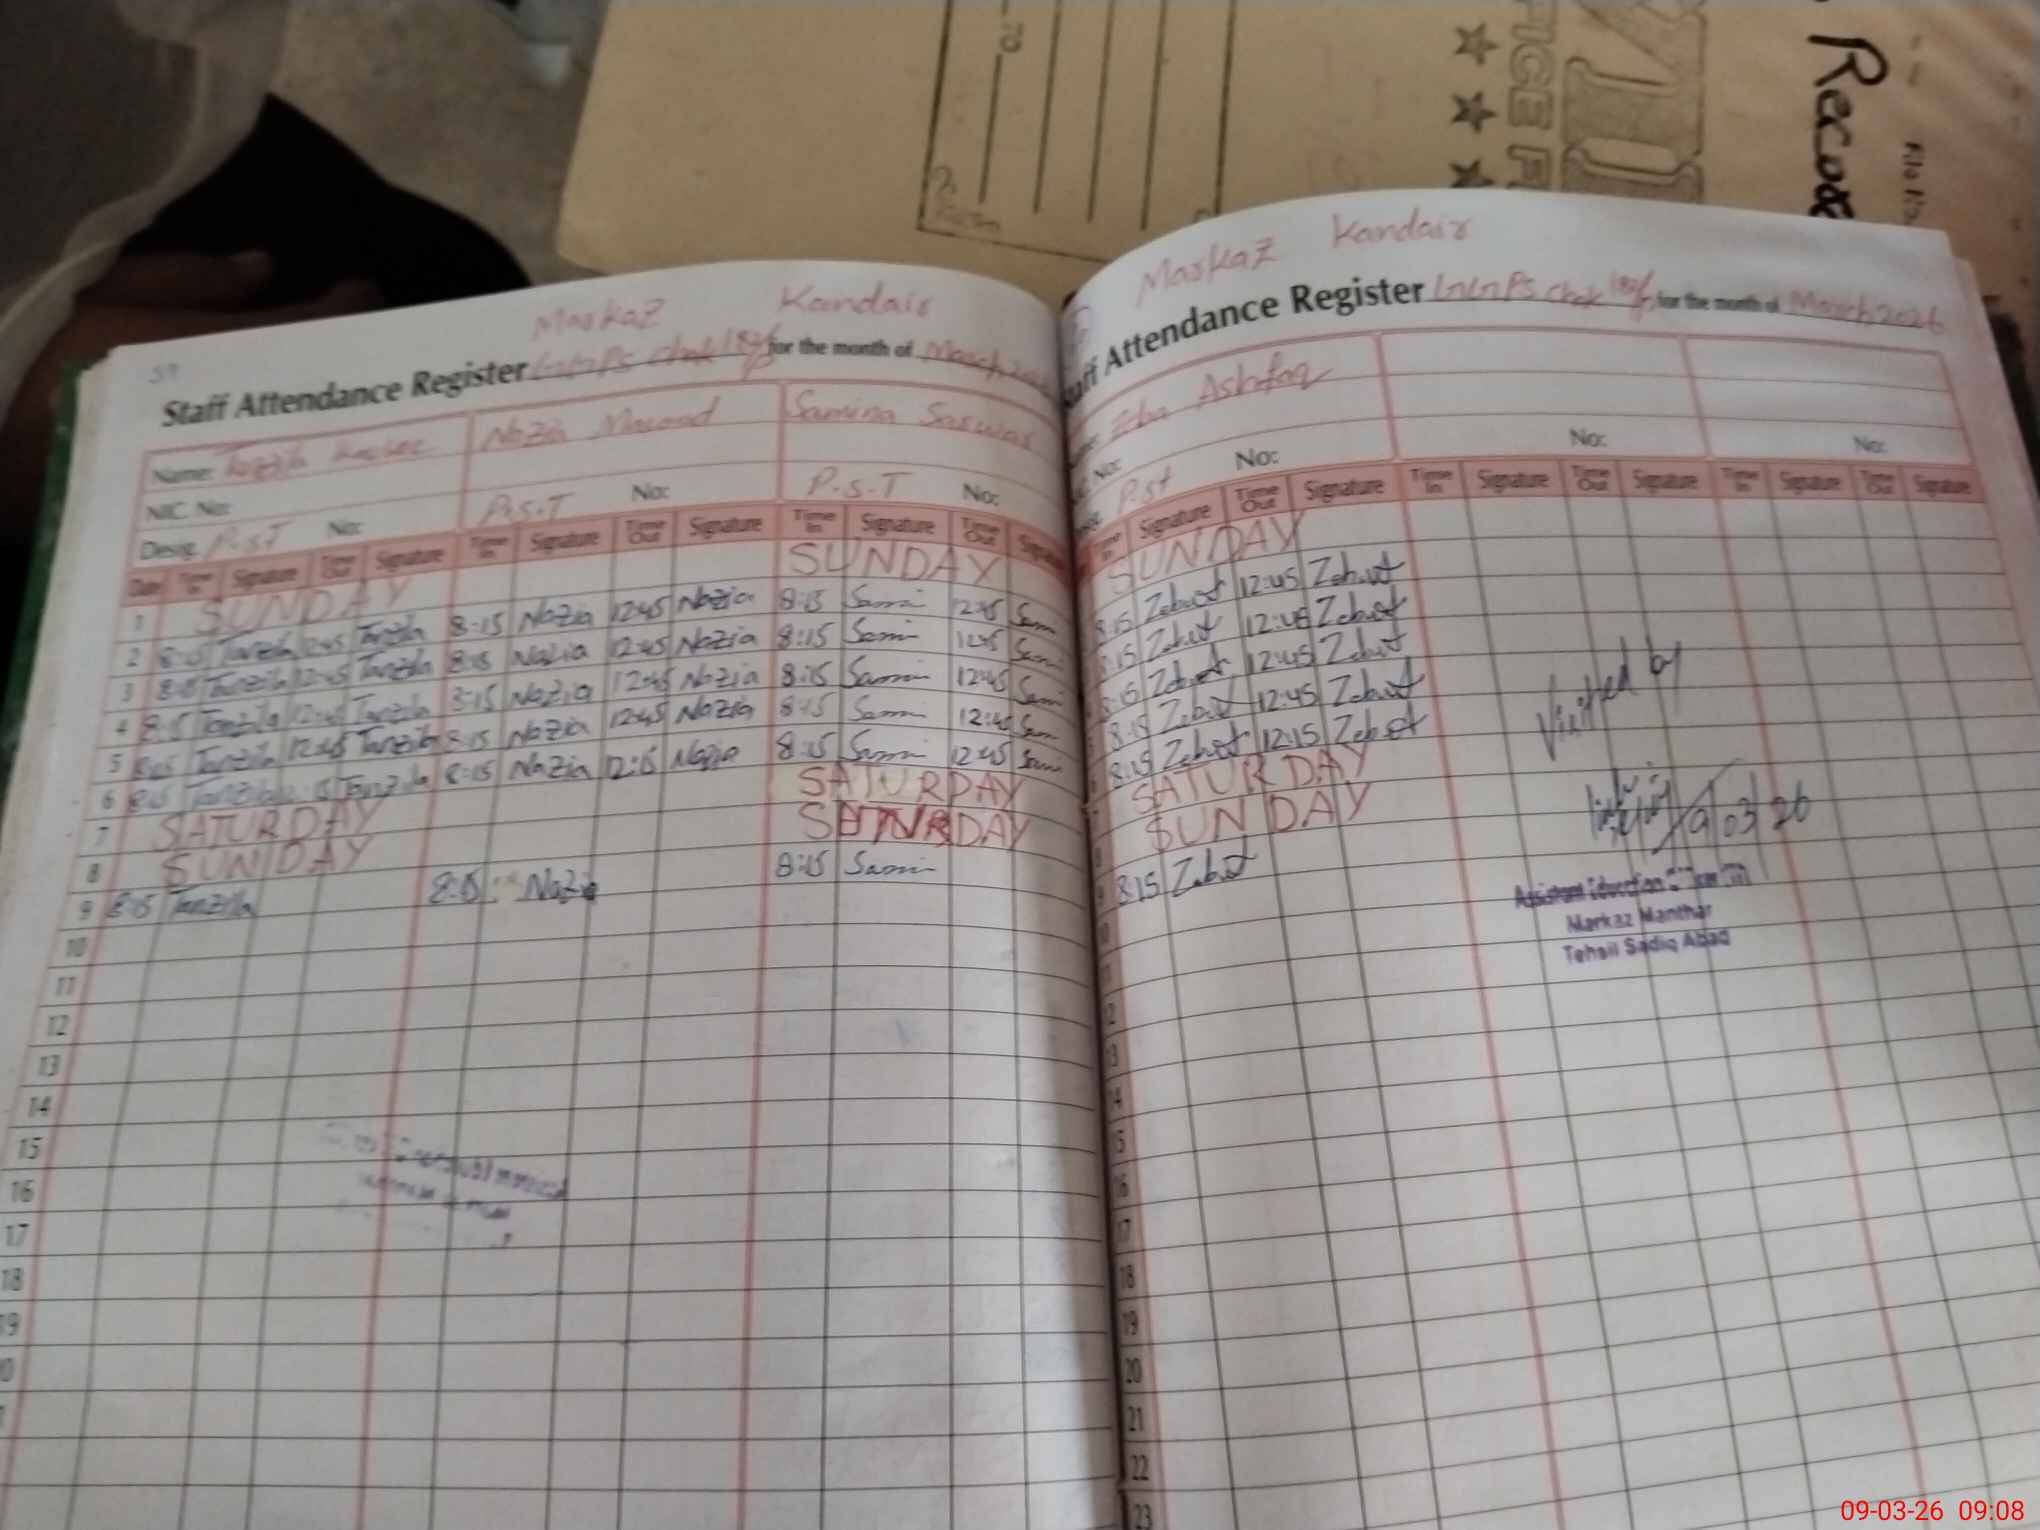 TO
OFFICE F
Record
File No.
Markaz Kandair
Staff Attendance Register for the month of March,
Name: Nazia Samina Sarwar
NIC. No:
Desig. P.s.T No: P.s.T No: P.s.T No:
Date Time In Signature Time Out Signature Time In Signature Time Out Signature Time In Signature Time Out Signature
1 SUNDAY SUNDAY
2 8:15 Tanzila 12:45 Tanzila 8:15 Nazia 12:45 Nazia 8:15 Sami 12:45 Sami
3 8:15 Tanzila 12:45 Tanzila 8:15 Nazia 12:45 Nazia 8:15 Sami 12:45 Sami
4 8:15 Tanzila 12:45 Tanzila 8:15 Nazia 12:45 Nazia 8:15 Sami 12:45 Sami
5 8:15 Tanzila 12:45 Tanzila 8:15 Nazia 12:45 Nazia 8:15 Sami 12:45 Sam
6 8:15 Tanzila Tanzila 8:15 Nazia 12:15 Nazia 8:15 Sami 12:45 Sami
7 SATURDAY SATURDAY
8 SUNDAY
9 8:15 Tanzila 8:15 Nazia 8:15 Sami
10
11
12
13
14
15
16
17
18
Markaz Kandair
Staff Attendance Register Chak for the month of March, 2026
Zeba Ashfaq
No:
P.st No: No: No:
Time In Signature Time Out Signature Time In Signature Time Out Signature Time In Signature Time Out Signature
SUNDAY
8:15 Zebust 12:45 Zebust
8:15 Zebust 12:45 Zebust
8:15 Zebust 12:45 Zebust
8:15 Zebust 12:45 Zebust
8:15 Zebust 12:15 Zebust
SATURDAY
SUNDAY
8:15 Zebust
Visited by
9/03/26
Assistant Education Officer
Markaz Manthar
Tehsil Sadiq Abad
13
14
15
16
17
18
19
20
21
22
23
09-03-26 09:08